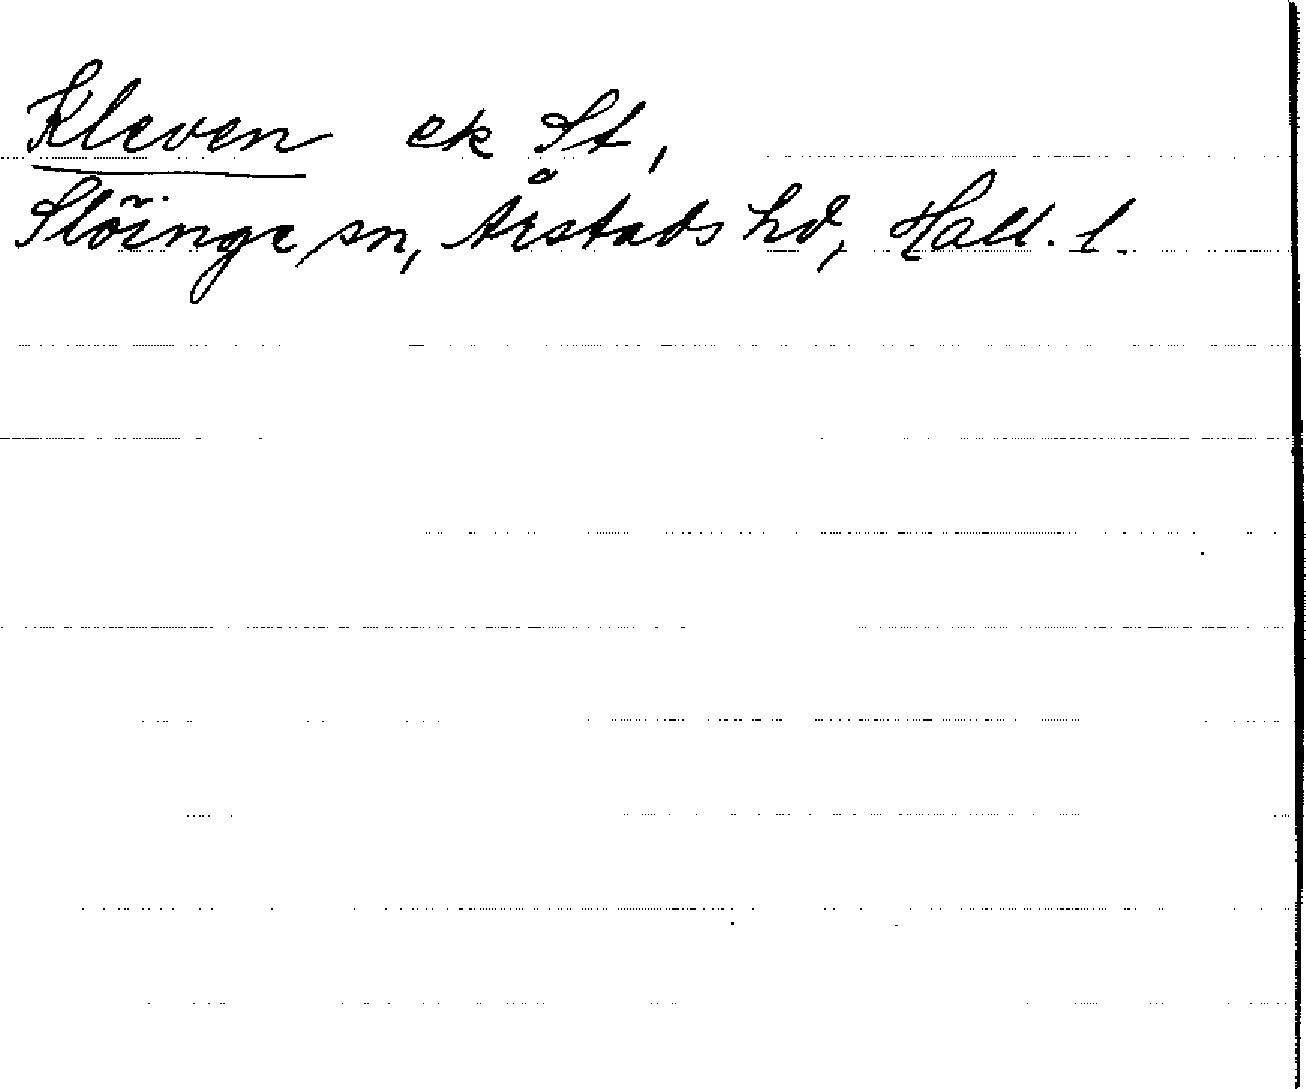 Kleven ek St,
Slöinge sn, Årstads hd, Hall. l.